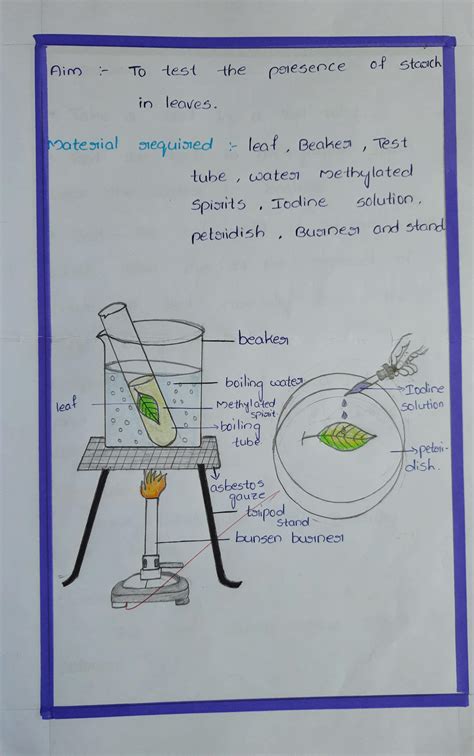 Aim :- To test the presence of starch
in leaves.
Material required :- leaf, Beaker, Test
tube, water Methylated
Spirits, Iodine solution,
petridish, Burner and stand
beaker
boiling water
leaf
Methylated
spirit
boiling
tube
Iodine
solution
petri-
dish.
asbestos
gauze
tripod
stand
bunsen burner